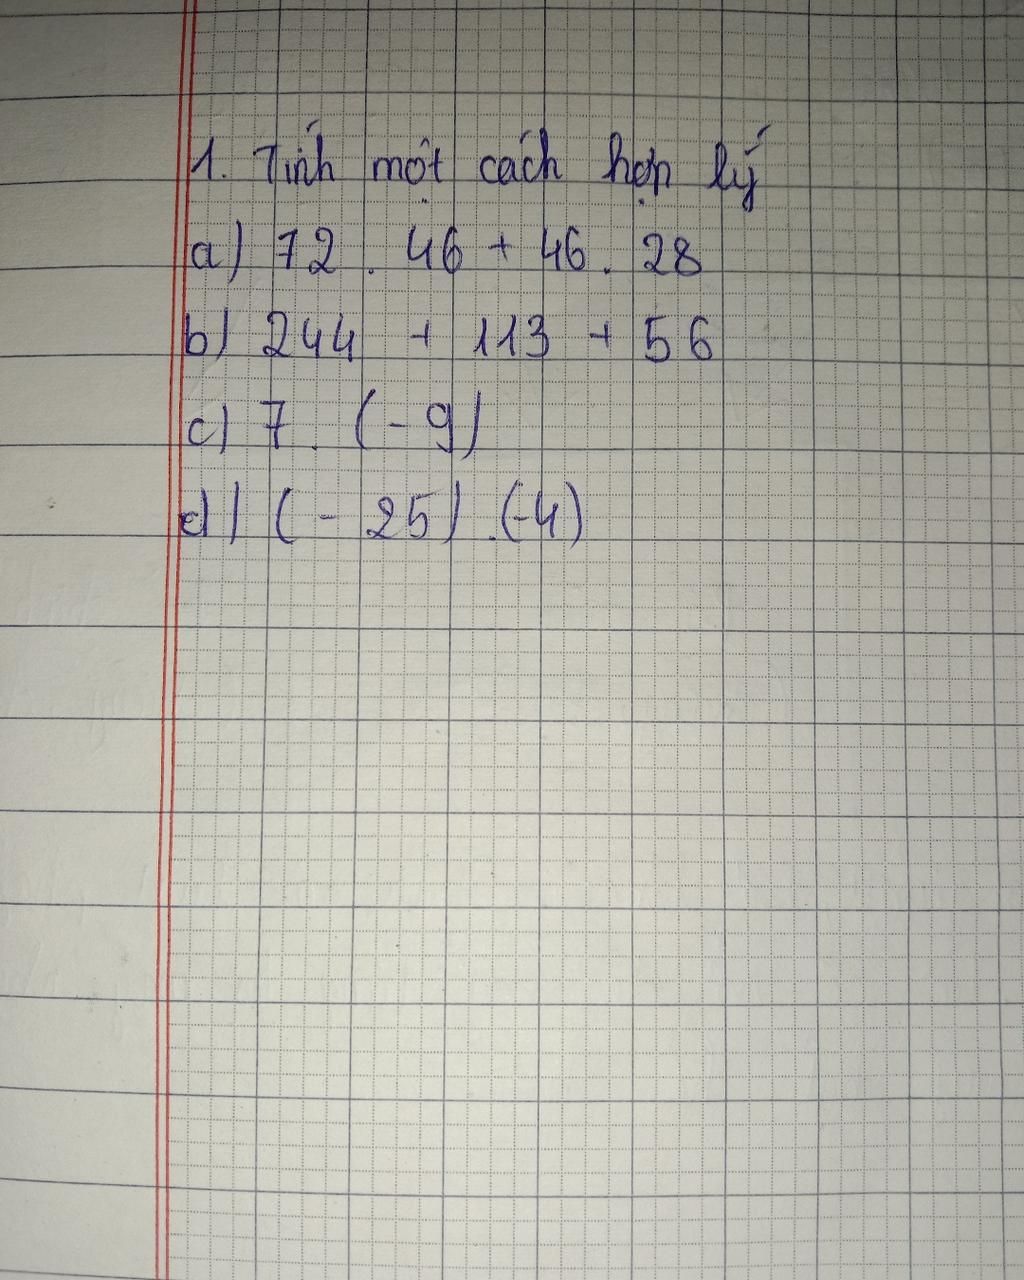 1. Tính một cách hợp lý
a) 72 . 46 + 46 . 28
b) 244 + 113 + 56
c) 7 . (-9)
d) (- 25) .(-4)